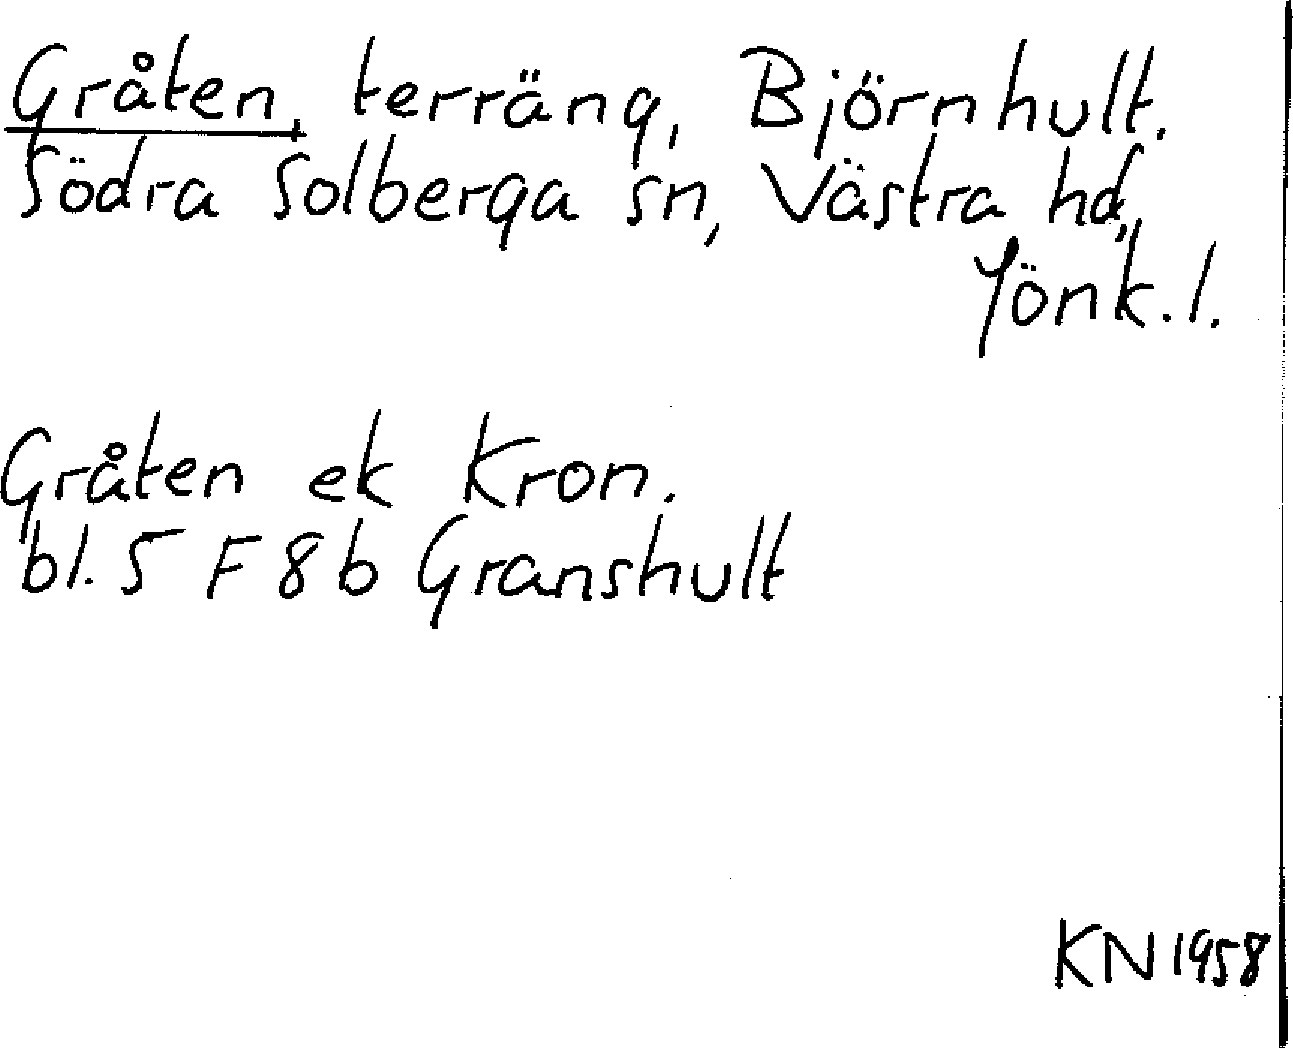 Gråten, terräng, Björnhult.
Södra Solberga sn, Västra hd,
Jönk.l.
Gråten ek Kron.
bl. 5 F 8 b Granshult
KN 1958